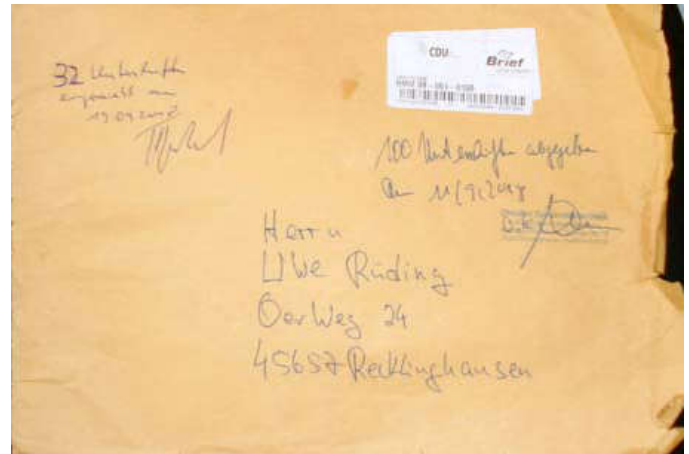 CDU
Brief
32 Unterschriften
eingereicht am
19.09.2018
100 Unterschriften abgegeben
am 11/9/2018
Herrn
Uwe Rüding
Oerweg 24
45657 Recklinghausen